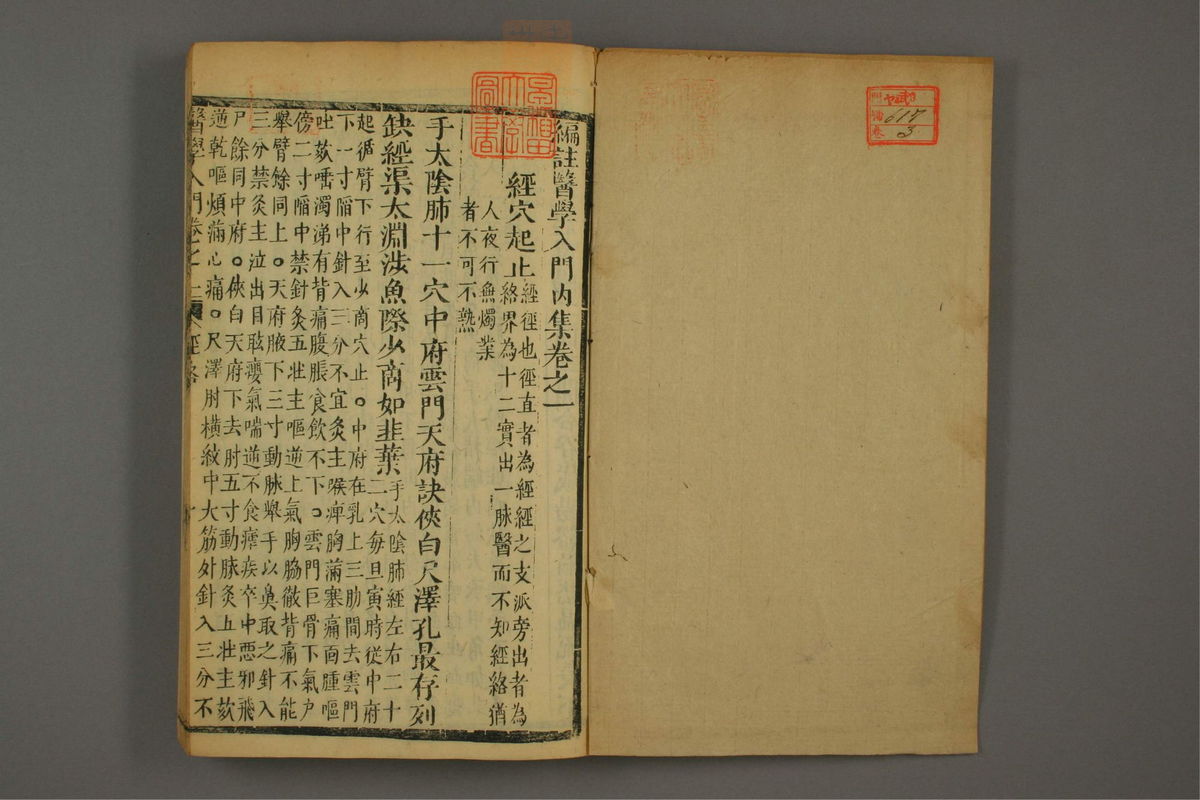 編註醫學入門內集卷之一
經穴起止經徑也徑直者為經經之支派旁出者為
絡界為十二實出一脉醫而不知經絡猶
人夜行無燭業
者不可不熟
手太陰肺十一穴中府雲門天府訣俠白尺澤孔最存列
缺經渠太淵涉魚際少商如韭葉手太陰肺經左右二十
二穴每旦寅時從中府
起循臂下行至少商穴止○中府在乳上三肋間去雲門
下一寸陷中針入三分不宜灸主喉痺胸滿塞痛面腫嘔
吐欬唾濁涕有背痛腹脹食飲不下○雲門巨骨下氣戶
傍二寸陷中禁針灸五壯主嘔逆上氣胸脇徹背痛不能
舉臂餘同上○天府腋下三寸動脉舉手以鼻取之針入
三分禁灸主泣出目眩癭氣喘逆不食瘧疾卒中惡邪飛
尸餘同中府○俠白天府下去肘五寸動脉灸五壯主欬
逆乾嘔煩滿心痛○尺澤肘橫紋中大筋外針入三分不
醫學入門卷之一上 經絡
617
3